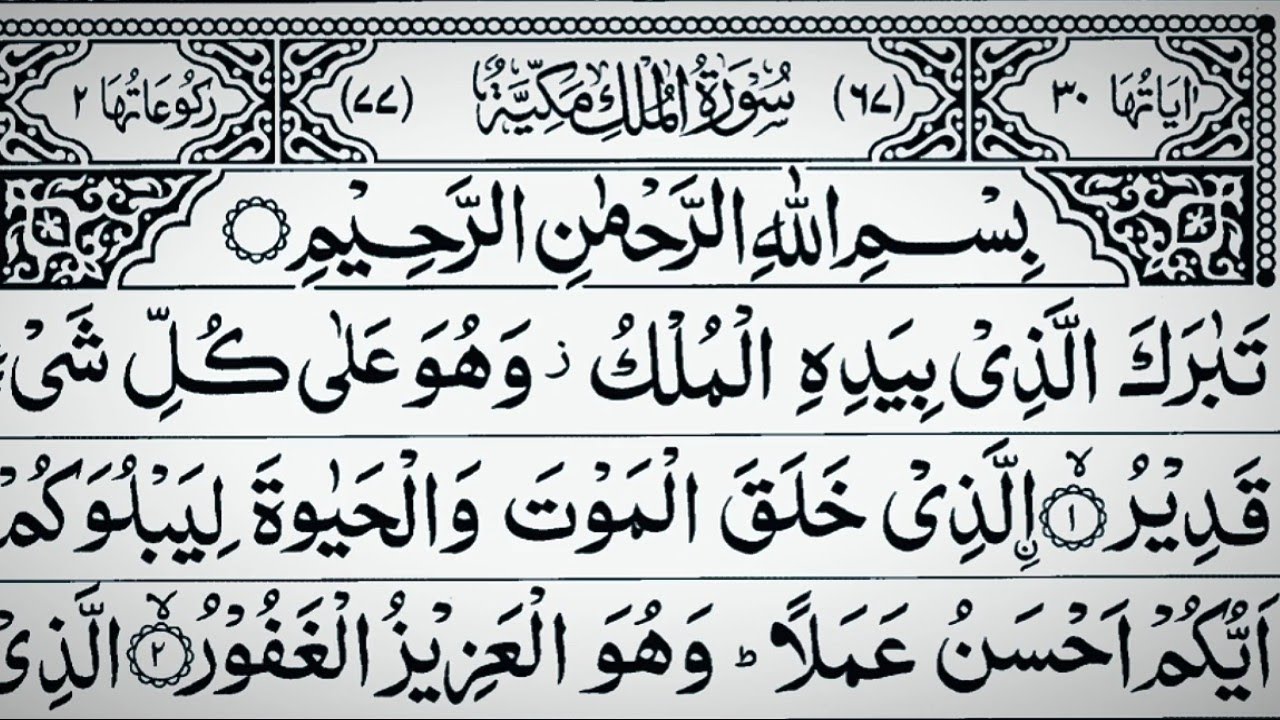 اٰيَاتُهَا ٣٠ (٦٧) سُوْرَةُ الْمُلْكِ مَكِّيَّةٌ (٧٧) رُكُوْعَاتُهَا ٢
بِسْمِ اللّٰهِ الرَّحْمٰنِ الرَّحِيْمِ
تَبٰرَكَ الَّذِىْ بِيَدِهِ الْمُلْكُ ز وَهُوَ عَلٰى كُلِّ شَىْءٍ
قَدِيْرُ ۙ ١ اِۨلَّذِىْ خَلَقَ الْمَوْتَ وَالْحَيٰوةَ لِيَبْلُوَكُمْ
اَيُّكُمْ اَحْسَنُ عَمَلًا ؕ وَهُوَ الْعَزِيْزُ الْغَفُوْرُ ۙ ٢ الَّذِىْ